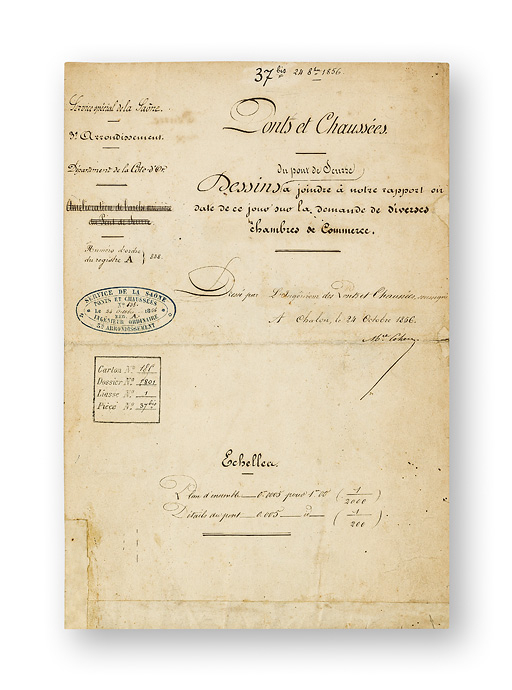 37 bis 24 8bre 1856
Service spécial de la Saône.
3e Arrondissement.
Département de la Côte-d'Or.
Amélioration de l'arche marinière
du Pont de Seurre
Numéro d'ordre
du registre A } 828.
Ponts et Chaussées.
du pont de Seurre
Dessins à joindre à notre rapport en
date de ce jour sur la demande de diverses
chambres de Commerce.
Dressé par L'Ingénieur des Ponts et Chaussées, soussigné
A Chalon, le 24 Octobre 1856.
SERVICE DE LA SAÔNE
PONTS ET CHAUSSÉES
No
Le 24 octobre 1856
REG. A.
INGÉNIEUR ORDINAIRE
3e ARRONDISSEMENT
Carton No
Dossier No 1801
Liasse No 1
Pièce No 37 bis
Echelles.
Plan d'ensemble 0.0005 pour 1m00 (1/2000)
Détails du pont 0.005 d° (1/200)